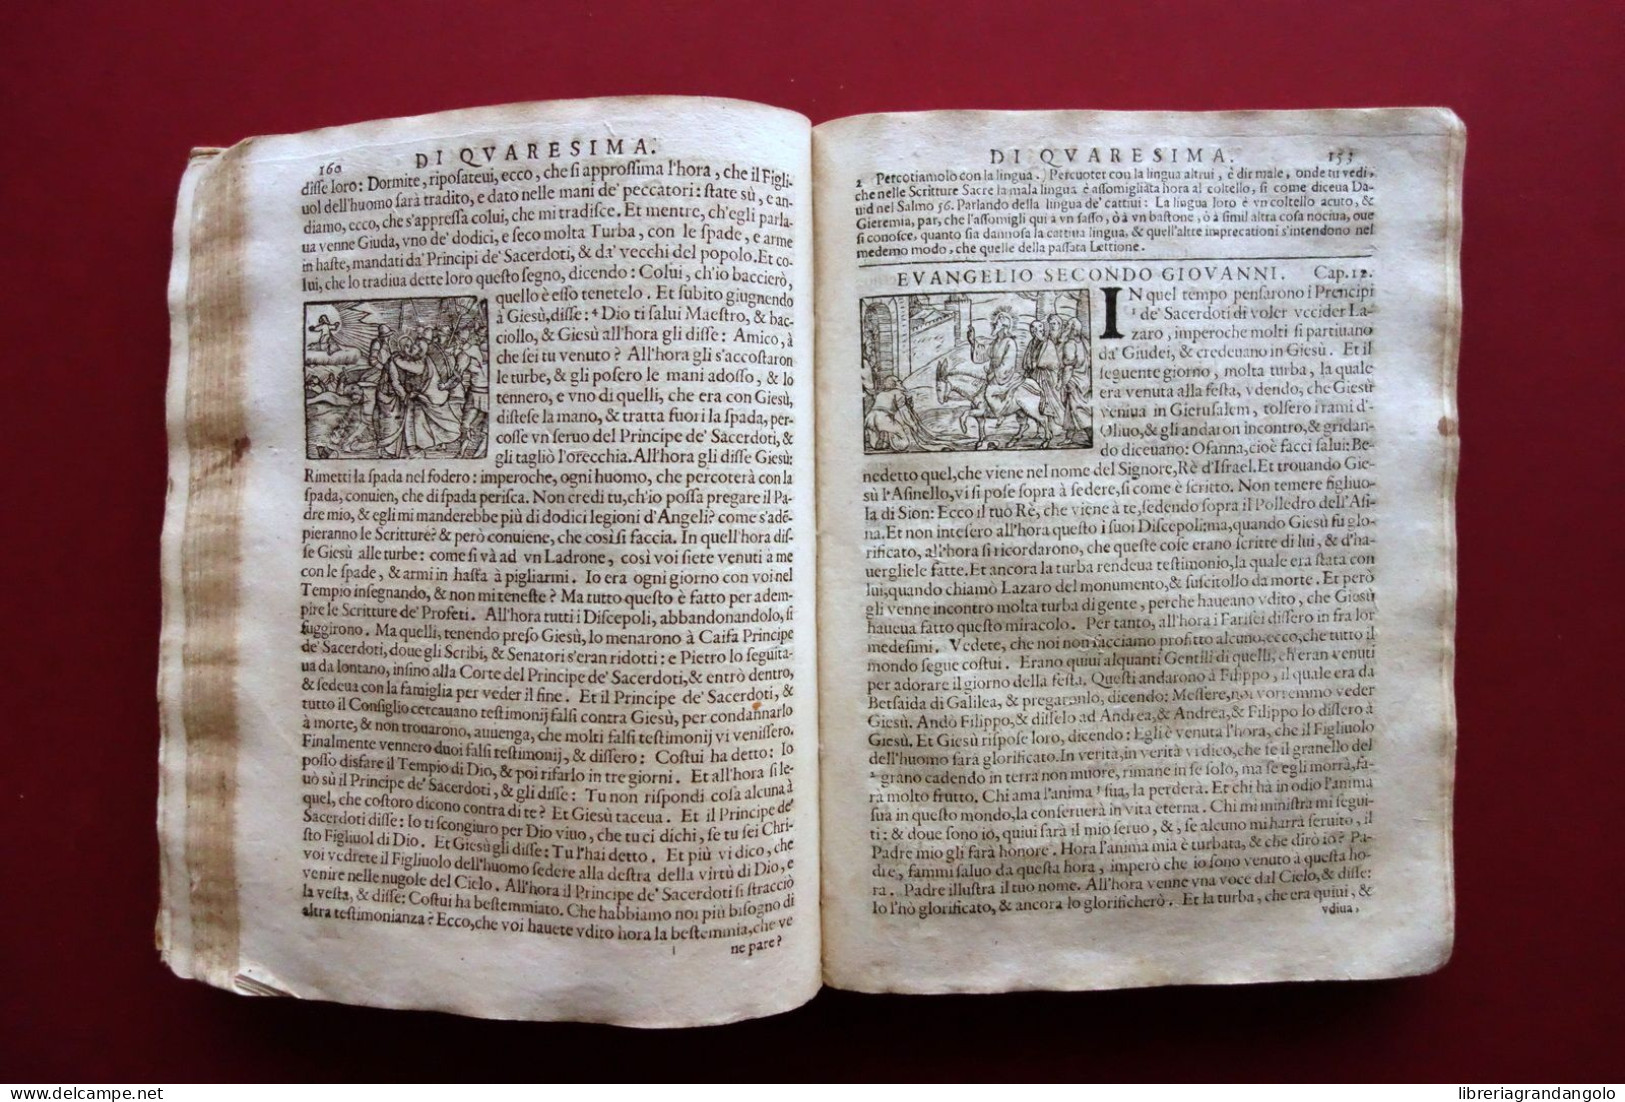 160 DI QVARESIMA.
disse loro: Dormite, riposateui, ecco, che si approssima l'hora, che il Figli-
uol dell'huomo sarà tradito, e dato nelle mani de' peccatori: state sù, e an-
diamo, ecco, che s'appressa colui, che mi tradisce. Et mentre, ch'egli parla-
ua venne Giuda, vno de' dodici, e seco molta Turba, con le spade, e arme
in haste, mandati da' Principi de' Sacerdoti, & da' vecchi del popolo. Et co-
lui, che lo tradiua dette loro questo segno, dicendo: Colui, ch'io baccierò,
quello è esso tenetelo. Et subito giugnendo
à Giesù, disse: ⁴ Dio ti salui Maestro, & bac-
ciollo, & Giesù all'hora gli disse: Amico, à
che sei tu venuto? All'hora gli s'accostaron
le turbe, & gli posero le mani adosso, & lo
tennero, e vno di quelli, che era con Giesù,
distese la mano, & tratta fuori la spada, per-
cosse vn seruo del Principe de' Sacerdoti, &
gli tagliò l'orecchia. All'hora gli disse Giesù:
Rimetti la spada nel fodero: imperoche, ogni huomo, che percoterà con la
spada, conuien, che di spada perisca. Non credi tu, ch'io possa pregare il Pa-
dre mio, & egli mi manderebbe più di dodici legioni d'Angeli? come s'adē-
pieranno le Scritture? & però conuiene, che così si faccia. In quell'hora dis-
se Giesù alle turbe: come si và ad vn Ladrone, così voi siete venuti a me
con le spade, & armi in hasta à pigliarmi. Io era ogni giorno con voi nel
Tempio insegnando, & non mi teneste? Ma tutto questo è fatto per adem-
pire le Scritture de' Profeti. All'hora tutti i Discepoli, abbandonandolo, si
fuggirono. Ma quelli, tenendo preso Giesù, lo menarono à Caifa Principe
de' Sacerdoti, doue gli Scribi, & Senatori s'eran ridotti: e Pietro lo seguita-
ua da lontano, insino alla Corte del Principe de' Sacerdoti, & entrò dentro,
& sedeua con la famiglia per veder il fine. Et il Principe de' Sacerdoti, &
tutto il Consiglio cercauano testimonij falsi contra Giesù, per condannarlo
à morte, & non trouarono, auuenga, che molti falsi testimonij vi venissero.
Finalmente vennero duoi falsi testimonij, & dissero: Costui ha detto: Io
posso disfare il Tempio di Dio, & poi rifarlo in tre giorni. Et all'hora si le-
uò sù il Principe de' Sacerdoti, & gli disse: Tu non rispondi cosa alcuna à
quel, che costoro dicono contra di te? Et Giesù taceua. Et il Principe de'
Sacerdoti disse: Io ti scongiuro per Dio viuo, che tu ci dichi, se tu sei Chri-
sto Figliuol di Dio. Et Giesù gli disse: Tu l'hai detto. Et più vi dico, che
voi vedrete il Figliuolo dell'huomo sedere alla destra della virtù di Dio, e
venire nelle nugole del Cielo. All'hora il Principe de' Sacerdoti si stracciò
la vesta, & disse: Costui ha bestemmiato. Che habbiamo noi più bisogno di
altra testimonianza? Ecco, che voi hauete vdito hora la bestemmia, che ve
ne pare?
DI QVARESIMA. 153
2 Percotiamolo con la lingua.) Percuoter con la lingua altrui, è dir male, onde tu vedi,
che nelle Scritture Sacre la mala lingua è assomigliata hora al coltello, si come diceua Da-
uid nel Salmo 56. Parlando della lingua de' cattiui: La lingua loro è vn coltello acuto, &
Gieremia, par, che l'assomigli qui a vn sasso, ò à vn bastone, ò à simil altra cosa nociua, oue
si conosce, quanto sia dannosa la cattiua lingua, & quell'altre imprecationi s'intendono nel
medemo modo, che quelle della passata Lettione.
EVANGELIO SECONDO GIOVANNI. Cap. 12.
IN quel tempo pensarono i Prencipi
¹ de' Sacerdoti di voler vccider La-
zaro, imperoche molti si partiuano
da' Giudei, & credeuano in Giesù. Et il
seguente giorno, molta turba, la quale
era venuta alla festa, vdendo, che Giesù
veniua in Gierusalem, tolsero i rami d'-
Oliuo, & gli andaron incontro, & gridan-
do diceuano: Osanna, cioè facci salui: Be-
nedetto quel, che viene nel nome del Signore, Rè d'Israel. Et trouando Gie-
sù l'Asinello, vi si pose sopra à sedere, si come è scritto. Non temere figliuo-
la di Sion: Ecco il tuo Rè, che viene à te, sedendo sopra il Polledro dell'Asi-
na. Et non intesero all'hora questo i suoi Discepoli: ma, quando Giesù fu glo-
rificato, all'hora si ricordarono, che queste cose erano scritte di lui, & d'ha-
uergliele fatte. Et ancora la turba rendeua testimonio, la quale era stata con
lui, quando chiamò Lazaro del monumento, & suscitollo da morte. Et però
gli venne incontro molta turba di gente, perche haueano vdito, che Giesù
haueua fatto questo miracolo. Per tanto, all'hora i Farisei dissero in fra lor
medesimi. Vedete, che noi non facciamo profitto alcuno, ecco, che tutto il
mondo segue costui. Erano quiui alquanti Gentili di quelli, ch'eran venuti
per adorare il giorno della festa. Questi andarono à Filippo, il quale era da
Betsaida di Galilea, & pregaronlo, dicendo: Messere, noi vorremmo veder
Giesù. Andò Filippo, & disselo ad Andrea, & Andrea, & Filippo lo dissero à
Giesù. Et Giesù rispose loro, dicendo: Egli è venuta l'hora, che il Figliuolo
dell'huomo sarà glorificato. In verità, in verità vi dico, che se il granello del
² grano cadendo in terra non muore, rimane in se solo, ma se egli morrà, fa-
rà molto frutto. Chi ama l'anima ³ sua, la perderà. Et chi hà in odio l'anima
sua in questo mondo, la conseruerà in vita eterna. Chi mi ministra mi segui-
ti: & doue sono io, quiui sarà il mio seruo, &, se alcuno mi harà seruito, il
Padre mio gli farà honore. Hora l'anima mia è turbata, & che dirò io? Pa-
dre, fammi saluo da questa hora, imperò che io sono venuto a questa ho-
ra. Padre illustra il tuo nome. All'hora venne vna voce dal Cielo, & disse:
Io l'hò glorificato, & ancora lo glorificherò. Et la turba, che era quiui, &
vdiua,
delcampe.net
libreriagrandangolo